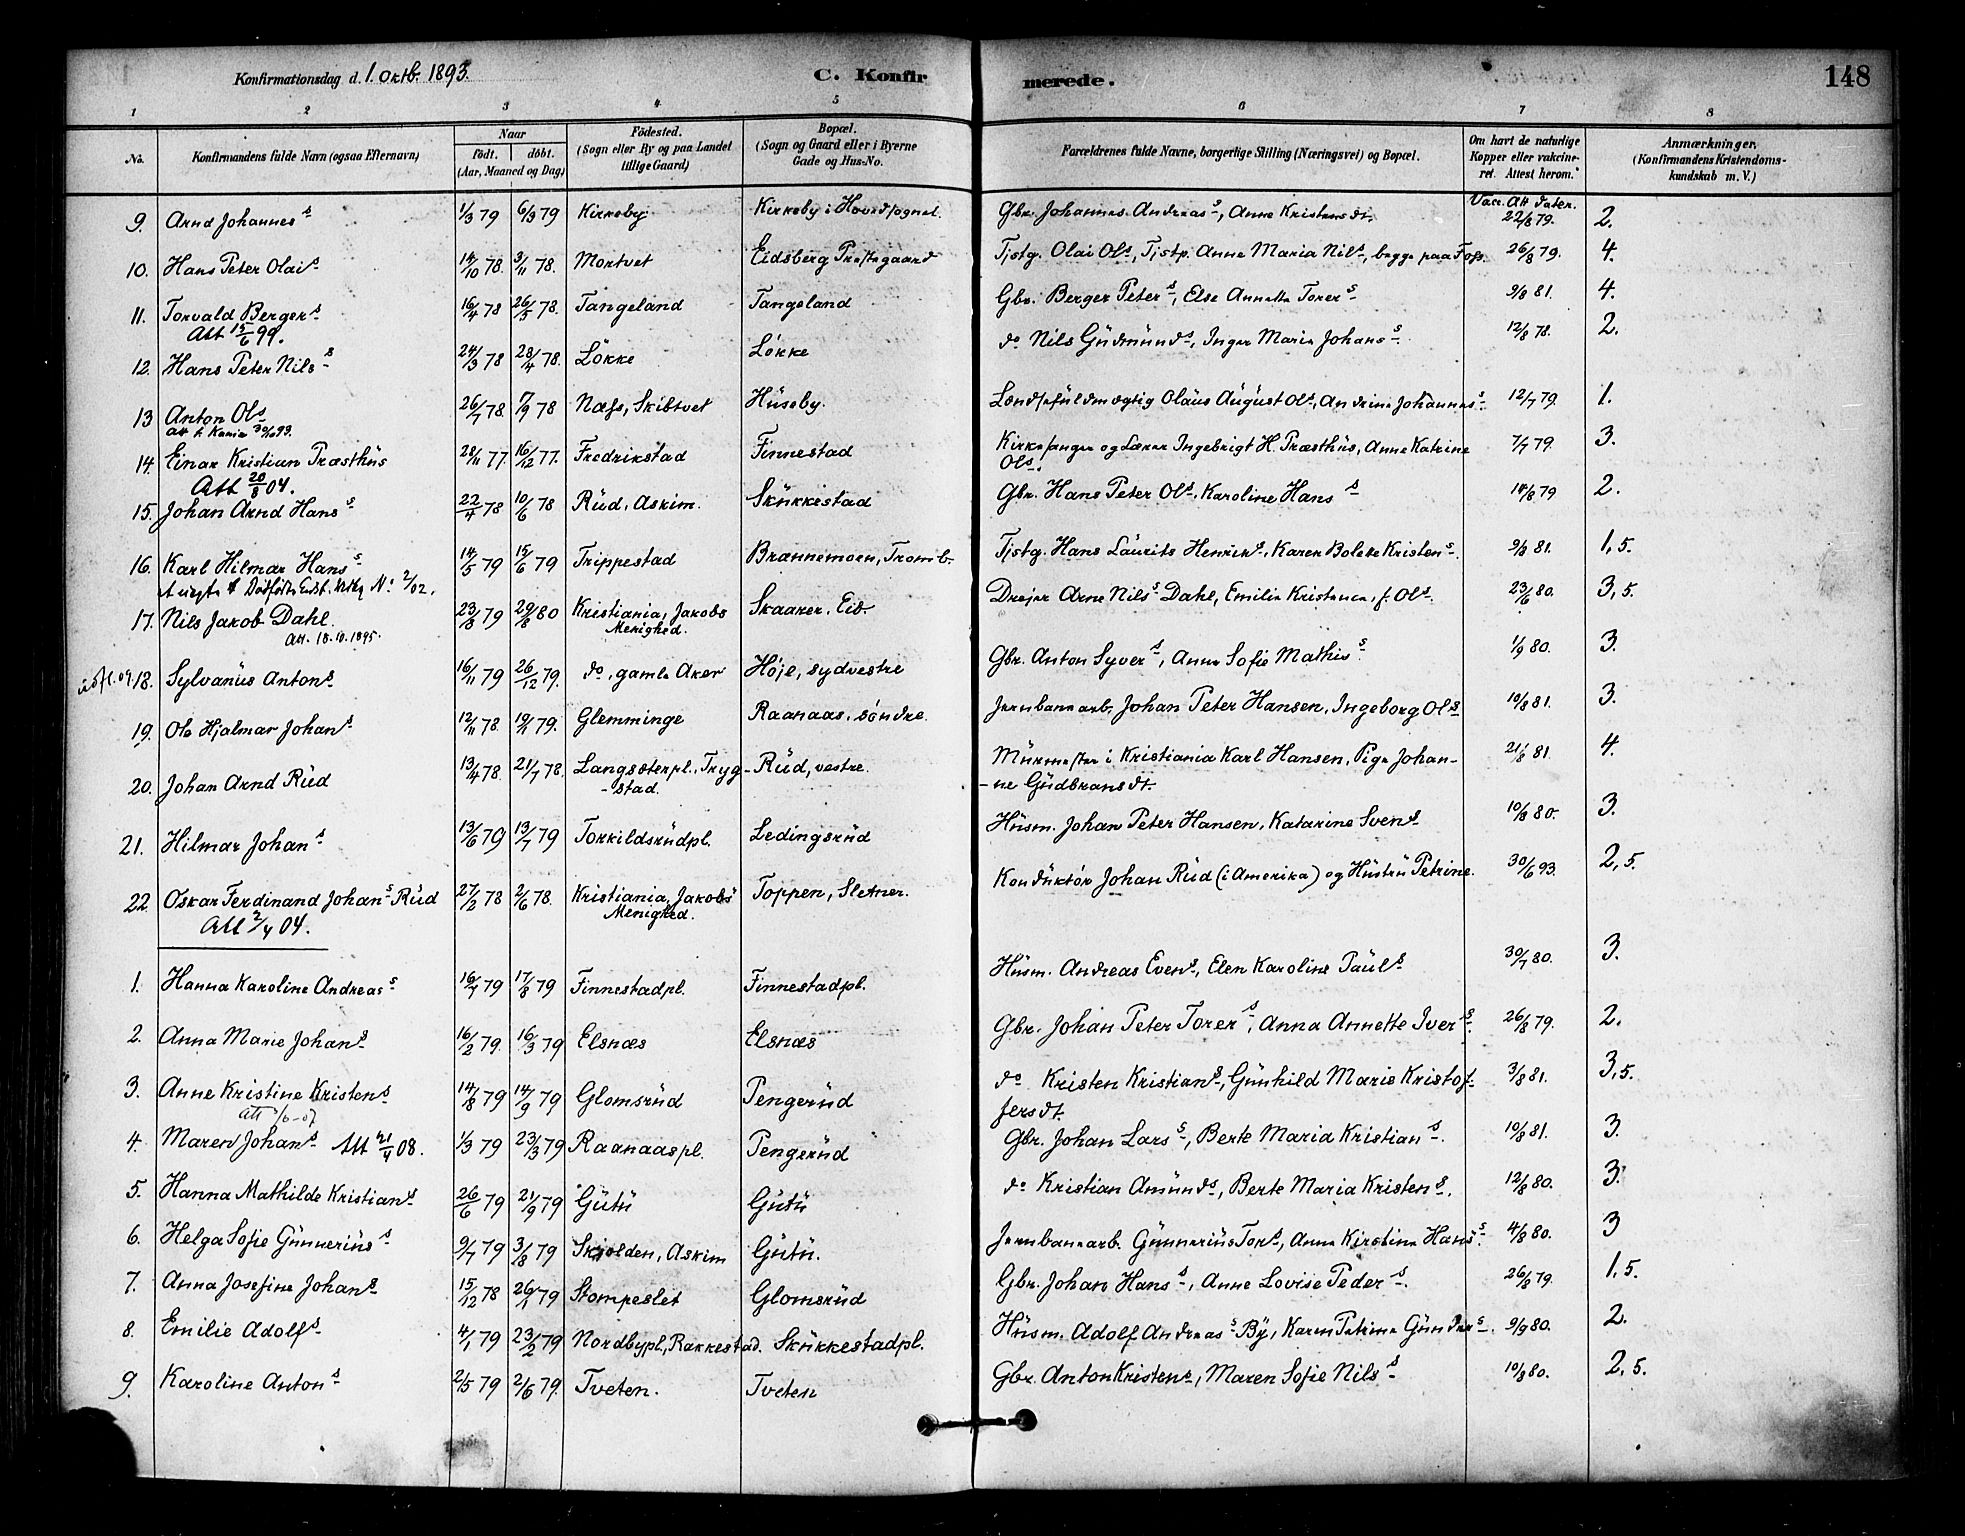 Konfirmationsdag d. 1. Oktb. 1893.
C. Konfirmerede.
148
1 2 3 4 5 6 7 8
No.
Konfirmandens fulde Navn (ogsaa Efternavn)
Naar
Födt. döbt.
(Aar, Maaned og Dag)
Födested.
(Sogn eller By og paa Landet
tillige Gaard)
Bopæl.
(Sogn og Gaard eller i Byerne
Gade og Hus-No.
Forældrenes fulde Navne, borgerlige Stilling (Næringsvei) og Bopæl.
Om havt de naturlige
Kopper eller vakcine-
ret. Attest herom.
Anmærkninger.
(Konfirmandens Kristendoms-
kundskab m. V.)
9. Arnd Johannes s 1/3 79 6/3 79 Kirkeby Kirkeby i Hovedsognet. Gbr. Johannes Andreas s, Anne Kristensdt. Vacc. Att dater. 22/8 79. 2.
10. Hans Peter Olai s 14/10 78. 3/11 78. Mortvet Eidsberg Præstegaard Tjstg. Olai Ols, Tjstp. Anne Maria Nils, begge paa Foss. 26/8 79. 4.
11. Torvald Berger s 16/4 78 26/5 78. Tangeland Tangeland Gbr. Berger Peter s, Else Annette Torer s 9/8 81. 4.
Att 15/6 99.
12. Hans Peter Nils s 24/3 78 28/4 78. Løkke Løkke do Nils Gudmunds, Inger Marie Johans 12/8 78. 2.
13 Anton Ols 26/7 78 7/9 78 Næss, Skibtvet Huseby. Lensfuldmægtig Olaus August Ols, Andrine Johannes s 12/7 79. 1.
14. Einar Kristian Præsthus 28/11 77. 16/12 77. Fredrikstad Finnestad Kirkesanger og Lærer Ingebrigt H. Præsthus, Anne Katrine
Ols. 7/7 79 3.
Att 20/8 04.
15. Johan Arnd Hans s 22/4 78 10/6 78 Rud, Askim. Skukkestad Gbr. Hans Peter Ols. Karoline Hans s 14/8 79 2.
16. Karl Hilmar Hans s 14/5 79 15/6 79 Trippestad Brannemoen, Tromb. Tjstg. Hans Laurits Henriks, Karen Bolette Kristen s. 9/8 81. 1,5.
17. Nils Jakob Dahl. 23/8 79 29/8 80 Kristiania, Jakobs
Menighed. Skaarer. Eid. Dreier Arne Nils s Dahl, Emilie Kristence, f. Ols. 23/6 80. 3,5.
Att. 18.10.1895.
18. Sylvanus Antons 16/11 79 26/12 79. do, gamle Aker Høje, sydvestre Gbr. Anton Syver s, Anne Sofie Mathis s. 1/9 80. 3.
19. Ole Hjalmar Johan s 12/11 78. 19/1 79. Glemminge Raanaas, søndre. Jernbanearb. Johan Peter Hansen, Ingeborg Ols 10/8 81. 3.
20. Johan Arnd Rud 13/4 78. 21/7 78. Langsæterpl., Tryg-
-stad. Rud, vestre. Murmester i Kristiania Karl Hansen, Pige Johan-
-ne Gudbransdt. 21/8 81. 4.
21. Hilmar Johan s 13/6 79 13/7 79 Torkildsrudpl. Ledingsrud Husm. Johan Peter Hansen, Katarine Svens 10/8 80. 3.
22. Oskar Ferdinand Johan s Rud 27/2 78 2/6 78. Kristiania, Jakobs
Menighed. Toppen, Sletner. Konduktør Johan Rud (i Amerika) og Hustru Petrine. 30/6 93. 2,5.
Att 2/4 04.
1. Hanna Karoline Andreas s 16/7 79 17/8 79 Finnestadpl. Finnestadpl. Husm. Andreas Evens, Elen Karoline Pauls 30/7 80. 3.
2. Anna Marie Johans 16/2 79. 16/3 79 Elsnæs Elsnæs Gbr. Johan Peter Torer s, Anna Annette Iver s. 26/8 79. 2.
3. Anne Kristine Kristens 14/8 79 14/9 79 Glomsrud Pengerud do Kristen Kristians, Gunhild Marie Kristof-
fersdt. 3/8 81. 3,5.
4. Maren Johans Att 21/4 08. 1/3 79 23/3 79 Raanaaspl. Pengerud Gbr. Johan Lars s, Berte Maria Kristian s. 10/8 81. 3.
5. Hanna Mathilde Kristians 26/6 79 21/9 79 Gutu Gutu do Kristian Amunds, Berte Maria Kristens. 12/8 80. 3.
6. Helga Sofie Gunnerius s 9/7 79 3/8 79 Skjolden, Askim Gutu. Jernbanearb. Gunnerius Tors, Anne Kirstine Hans s. 4/8 80. 3
7. Anna Josefine Johans 15/12 78 26/1 79 Stompeslet Glomsrud Gbr. Johan Hans s, Anne Lovise Peder s. 26/8 79. 1,5.
8. Emilie Adolfs 4/1 79 23/2 79 Nordbypl., Rakkestad. Skukkestadpl. Husm. Adolf Andreas s By, Karen Petrine Gunder s. 9/9 80. 2.
9. Karoline Anton s 2/5 79 2/6 79. Tveten. Tveten Gbr. Anton Kristens, Maren Sofie Nils s 10/8 80. 2,5.